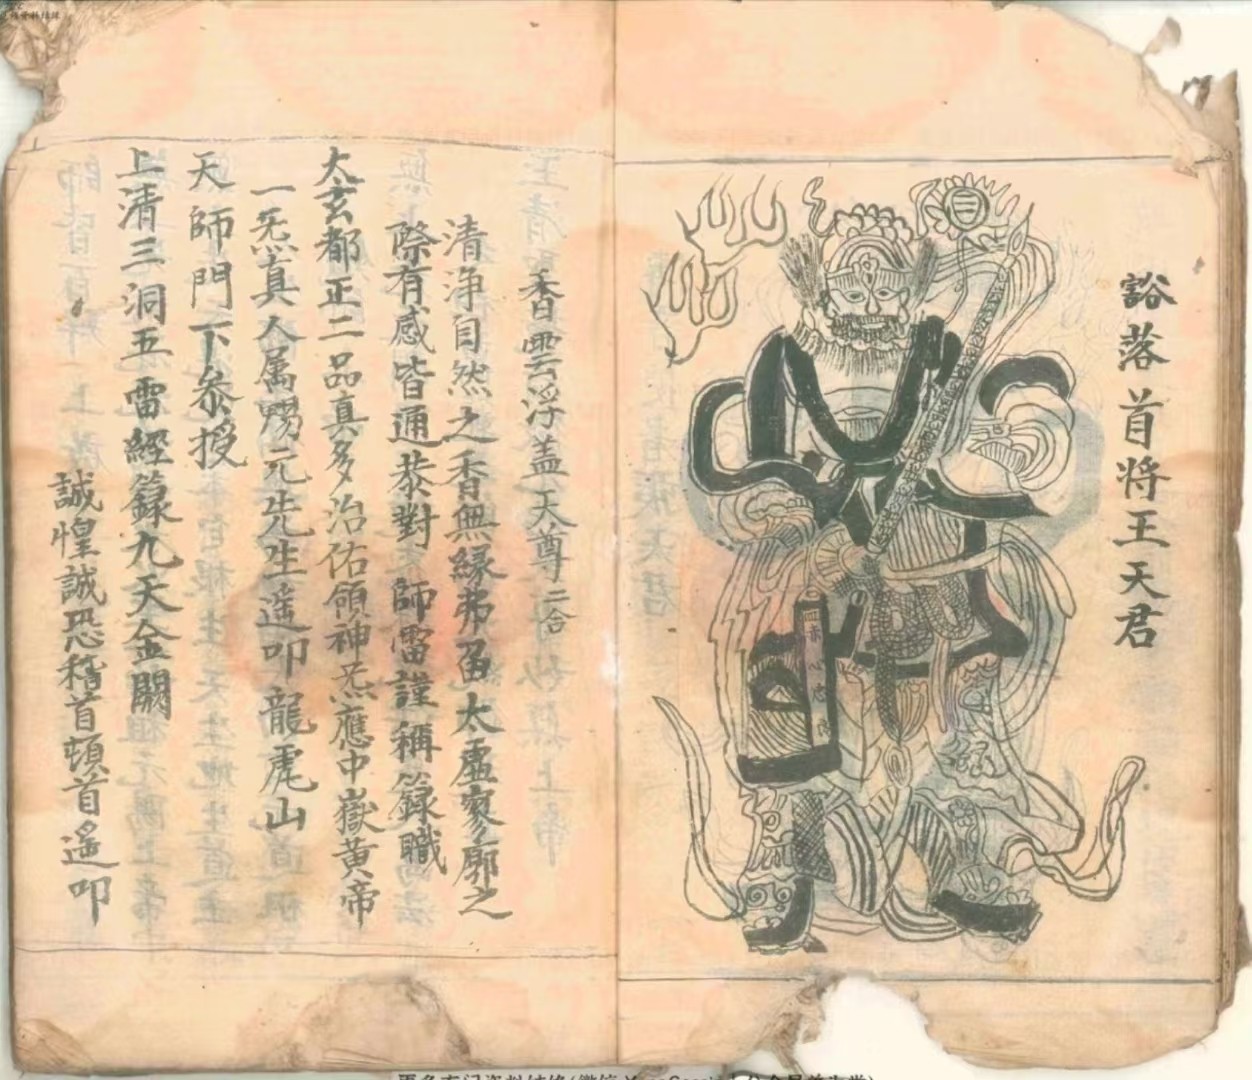 豁落首将王天君
香雲浮盖天尊二合
清浄自然之香無縁弗届太虚寥廓之
際有感皆通恭對 師雷謹稱籙職
太玄都正二品真多治佑領神炁應中嶽黄帝
一炁真人属 元先生遥叩龍虎山
天師門下叅授
上清三洞五雷經籙九天金闕
誠惶誠恐稽首頓首遥叩
赤心忠